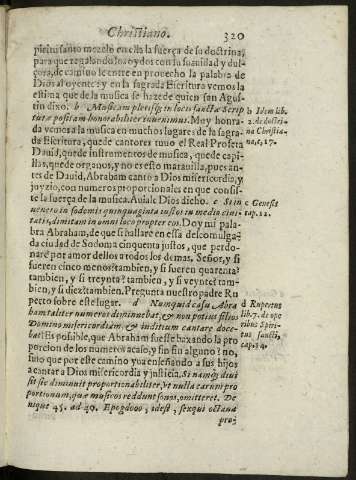 Christiano. 320
piritu santo mezcle en ella la fuerça de su doctrina,
para que regalando los oydos con su suauidad y dul-
çora, de camino le entre en prouecho la palabra de
Dios al oyente: y en la sagrada Escritura vemos la
estima que de la musica se haze de quien san Agus-
tin dixo. b Musicam plerisq; in locis sanctæ Scrip-
turæ positam honorabiliter inuenimus. Muy honra-
da vemos a la musica en muchos lugares de la sagra-
da Escritura, que de cantores tuuo el Real Profeta
Dauid, que de instrumentos de musica, que de capi-
llas, que de organos, y no es esto marauilla, pues an-
tes de Dauid, Abraham cantò a Dios misericordia, y
juyzio, con numeros proporcionales en que consis-
te la fuerça de la musica. Auiale Dios dicho. c Si in-
uenero in sodomis quinquaginta iustos in medio ciui-
tatis, dimittam in omni loco propter eos. Doy mi pala-
bra Abraham, de que si hallare en essa descomulga-
da ciudad de Sodoma cinquenta justos, que perdo-
narè por amor dellos a todos los demas, Señor, y si
fueren cinco menos? tambien, y si fueren quarenta?
tambien, y si treynta? tambien, y si veynte? tam-
bien, y si diez? tambien. Pregunta nuestro padre Ru
perto sobre este lugar. d Nunquid casu Abra
ham taliter numeros diminuebat, & non potius filios
Domino misericordiam, & iuditium cantare doce-
bat? Es posible, que Abraham fuesse baxando la pro
porcion de los numeros acaso, y sin fin alguno? no,
sino que por este camino yua enseñando a sus hijos
a cantar a Dios misericordia y justicia. Si namq; diui
sit sic diminuit proportionabiliter, vt nulla earum pro
portionum, quæ musicos reddunt sonos, omitteret. De
nique 45. ad 40. Epogdoos, idest, sexqui octaua
pro-
b Idem lib.
2. de doctri-
na Christia-
na, c, 17.
c Genesis
cap. 12.
d Rupertus
lib. 7. de ope
ribus Spiri-
tus sancti,
cap. 14.